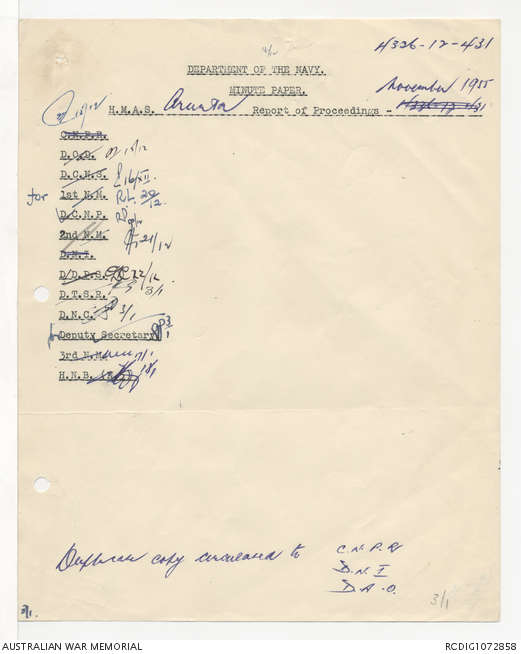 4326-12-431
DEPARTMENT OF THE NAVY.
MINUTE PAPER.
November 1955
H.M.A.S. Arunta Report of Proceedings -
C.N.P.R.
D.O.D. 15/12
D.C.N.S. 16/XII
for 1st N.M. R.L. 20/12
D.C.N.P.
2nd N.M. 21/12
D.N.I.
D/D.P.S. 22/12
D.T.S.R. 3/1
D.N.C. 3/1
for Deputy Secretary
3rd N.M.
H.N.B. 18/1
Duplicate copy circulated to C.N.P.R
D.N.I
D.A.O.
3/1
AUSTRALIAN WAR MEMORIAL
RCDIG1072858